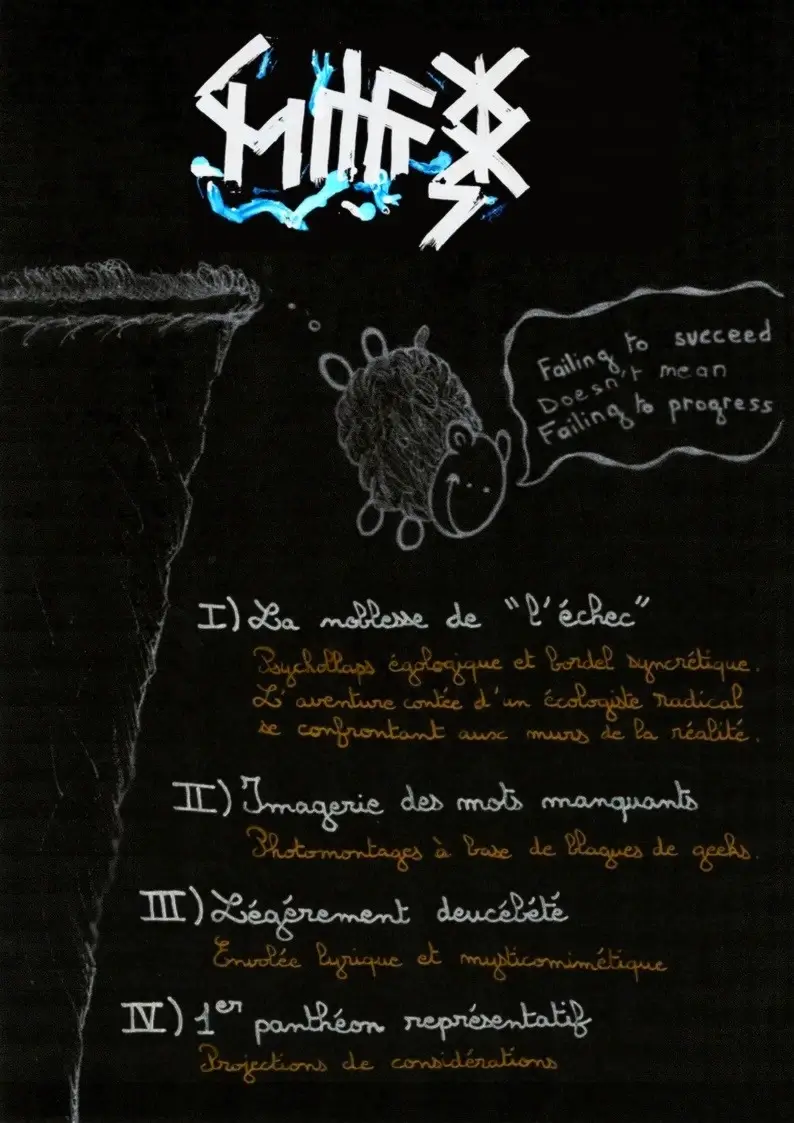 Failing to succeed
Doesn't mean
Failing to progress
I) La noblesse de "l'échec"
Psychollaps égologique et bordel syncrétique.
L'aventure contée d'un écologiste radical
se confrontant aux murs de la réalité.
II) Imagerie des mots manquants
Photomontages à base de blagues de geeks.
III) Légérement deucébété
Envolée lyrique et mysticomimétique
IV) 1er panthéon représentatif
Projections de considérations